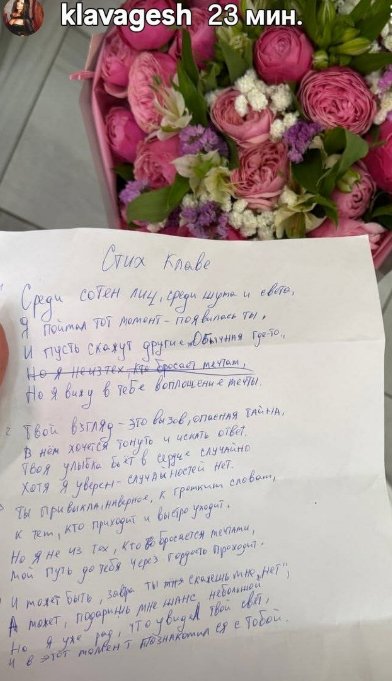 klavagesh 23 мин.
Стих Клаве
Среди сотен лиц, среди шума и света,
Я поймал тот момент - появилась ты,
И пусть скажут другие, Обычная где-то,
Но я не из тех, кто бросает мечтам,
Но я вижу в тебе воплощение мечты.
2 Твой взгляд - это вызов, опасная тайна,
В нём хочется тонуть и искать ответ.
Твоя улыбка бьёт в сердце случайно
Хотя я уверен - случайностей нет.
3 Ты привыкла, наверное, к громким словам,
К тем, кто приходит и быстро уходит.
Но я не из тех, кто бросается мечтами,
Мой путь до тебя через гордость проходит.
И может быть, завтра ты скажешь мне "нет",
А может, подаришь мне шанс небольшой
Но я уже рад, что увидел твой свет,
И в этот момент познакомился с тобой.